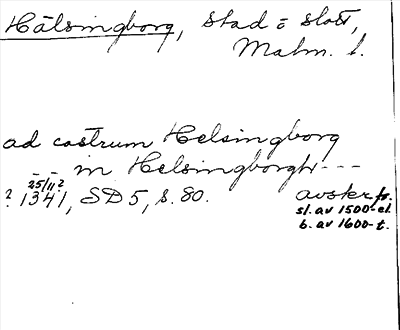 Hälsingborg, stad o slott,
Malm. l.
ad castrum Helsingborg
_ _ in Helsingborgh - - -
25/11 ?
? 1341, SD 5, s. 80. avskr. fr.
sl. av 1500- el.
b. av 1600-t.